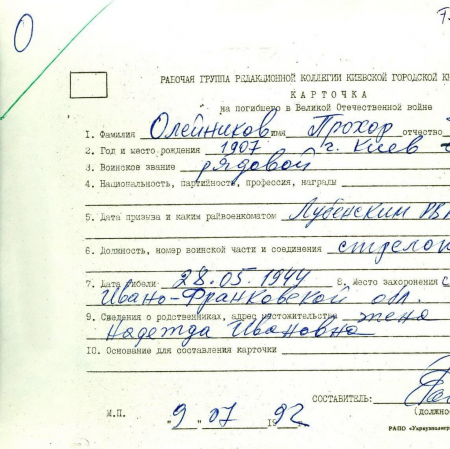 О
РАБОЧАЯ ГРУППА РЕДАКЦИОННОЙ КОЛЛЕГИИ КИЕВСКОЙ ГОРОДСКОЙ КН
КАРТОЧКА
на погибшего в Великой Отечественной войне
1. Фамилия Олейников имя Прохор отчество
2. Год и место рождения 1907 г. Киев
3. Воинское звание рядовой
4. Национальность, партийность, профессия, награды
5. Дата призыва и каким райвоенкоматом Лубенским РВ
6. Должность, номер воинской части и соединения стрелок
7. Дата гибели 28.05.1944 8. Место захоронения с
Ивано-Франковской обл.
9. Сведения о родственниках, адрес местожительства жена
Надежда Ивановна
10. Основание для составления карточки
СОСТАВИТЕЛЬ:
(должнос
М.П. "9" 07 1992
РАПО «Укрвузполигр